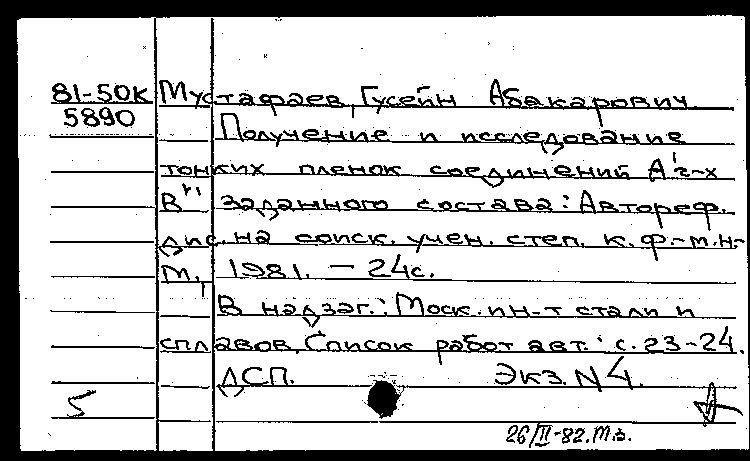 81-50К Мустафаев, Гусейн Абакарович
5890 Получение и исследование
тонких пленок соединений А'2-х
В'' заданного состава: Автореф.
дис. на соиск. учен. степ. к. ф.-м.н.-
М., 1981. - 24с.
В надзаг.: Моск. ин-т стали и
сплавов. Список работ авт.: с. 23-24.
ДСП. Экз. N 4.
5
26/II-82. т.з.